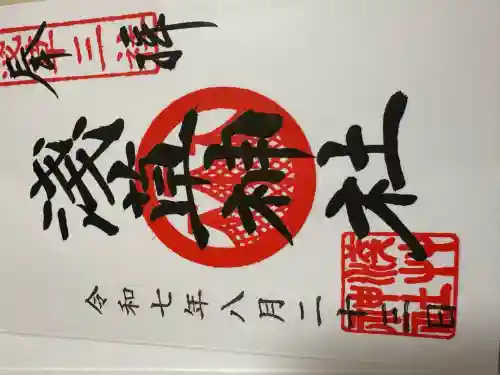 奉拝
浅草神社
令和七年八月二十三日